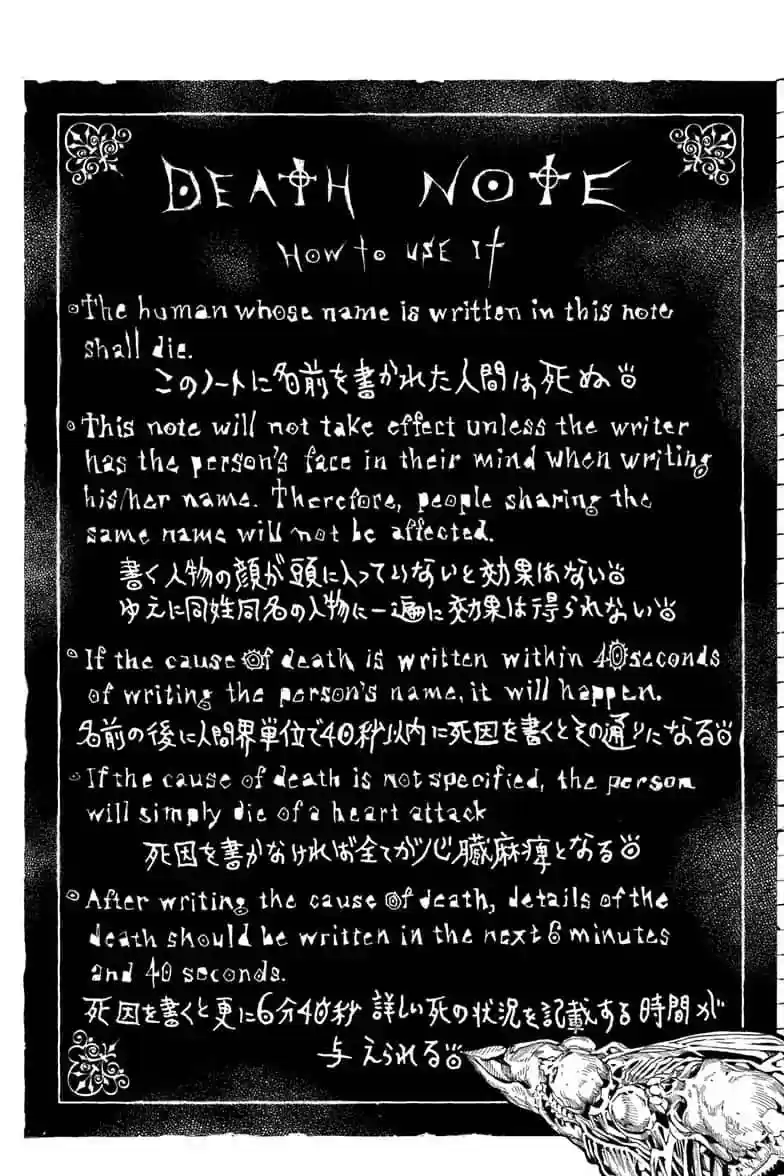 DEATH NOTE
HOW to USE It
The human whose name is written in this note
shall die.
このノートに名前を書かれた人間は死ぬ。
This note will not take effect unless the writer
has the person's face in their mind when writing
his/her name. Therefore, people sharing the
same name will not be affected.
書く人物の顔が頭に入っていないと効果はない。
ゆえに同姓同名の人物に一遍に効果は得られない。
If the cause of death is written within 40 seconds
of writing the person's name, it will happen.
名前の後に人間界単位で40秒以内に死因を書くとその通りになる。
If the cause of death is not specified, the person
will simply die of a heart attack
死因を書かなければ全てが心臓麻痺となる。
After writing the cause of death, details of the
death should be written in the next 6 minutes
and 40 seconds.
死因を書くと更に6分40秒 詳しい死の状況を記載する時間が
与えられる。